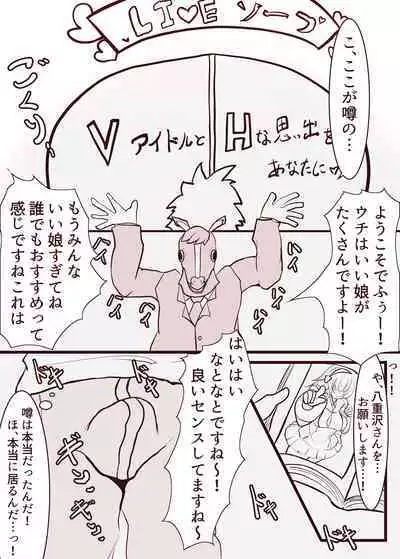 LI♥E ソープ
こ、ここが噂の…
ごくり
Vアイドルと
Hな思い出を
あなたに♡
ようこそでふぅー!
ウチはいい娘が
たくさんですよー!
もうみんな
いい娘すぎてね
誰でもおすすめって
感じですねこれは
っ!!
や、八重沢さんを…
お願いします…!
はいはい
なとなとですね〜!
良いセンスしてますね〜
噂は本当だったんだ!
ほ、本当に居るんだ…っ!